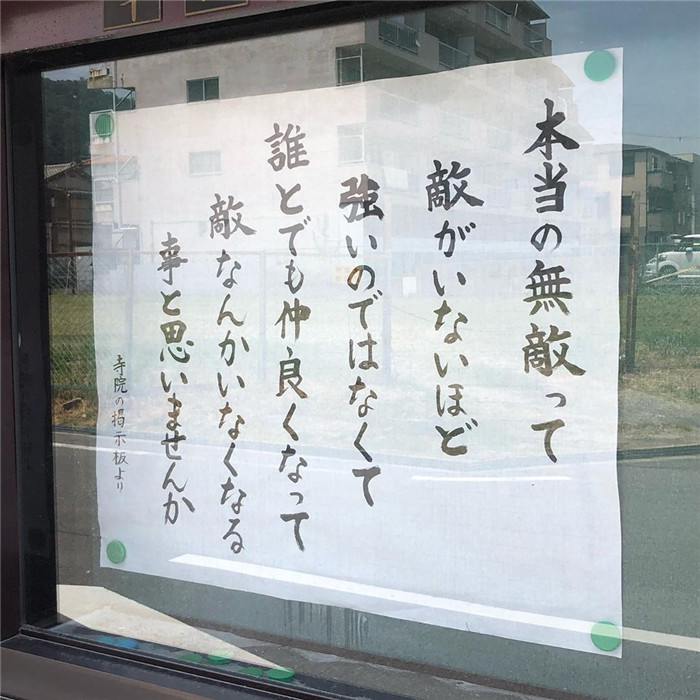 本当の無敵って
敵がいないほど
強いのではなくて
誰とでも仲良くなって
敵なんかいなくなる
事と思いませんか
寺院の掲示板より